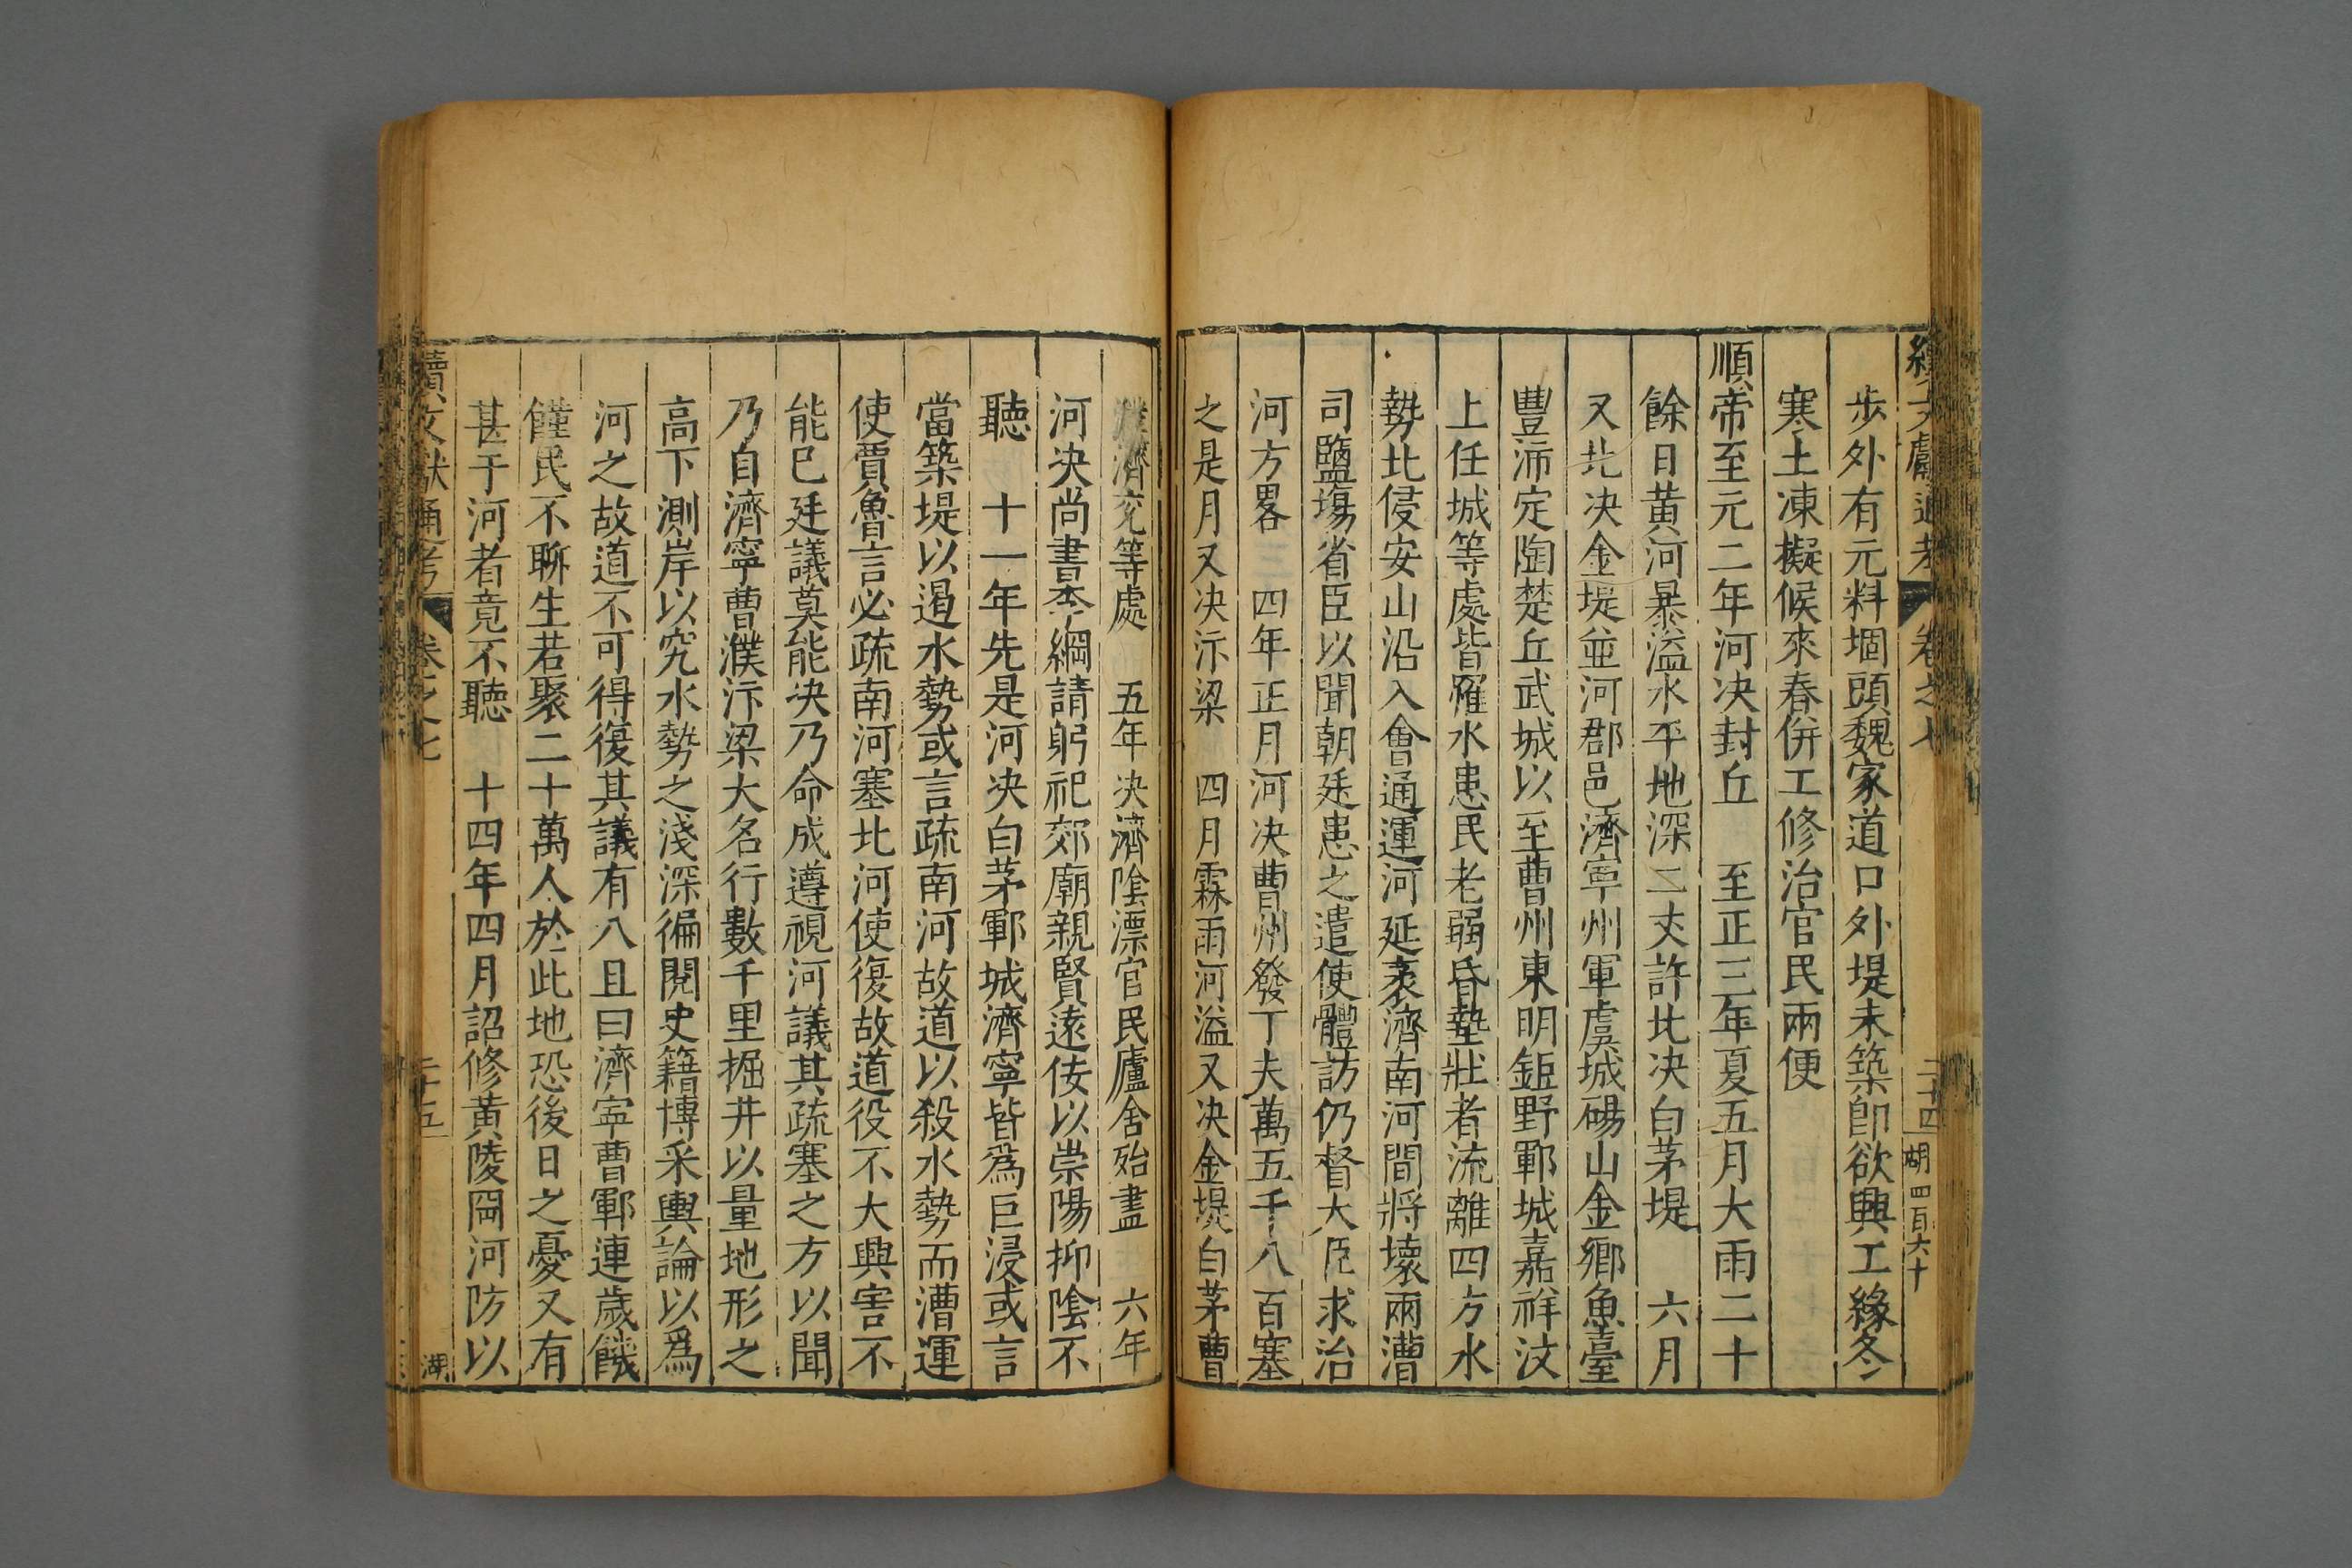 續文獻通考 卷之七 二十四 胡四百六十
步外有元料堌頭魏家道口外堤未築卽欲興工緣冬
寒土凍擬候來春併工修治官民兩便
順帝至元二年河决封丘 至正三年夏五月大雨二十
餘日黃河暴溢水平地深二丈許北决白茅堤 六月
又北决金堤並河郡邑濟寧州軍虞城碭山金鄉魚臺
豐沛定陶楚丘武城以至曹州東明鉅野鄆城嘉祥汶
上任城等處皆罹水患民老弱昏墊壯者流離四方水
勢北侵安山沿入會通運河延袤濟南河間將壞兩漕
司鹽塲省臣以聞朝廷患之遣使體訪仍督大臣求治
河方畧 四年正月河决曹州發丁夫萬五千八百塞
之是月又决汴梁 四月霖雨河溢又决金堤白茅曹
濮濟兖等處 五年决濟陰漂官民廬舍殆盡 六年
河决尚書李綱請躬祀郊廟親賢遠佞以崇陽抑陰不
聽 十一年先是河决白茅鄆城濟寧皆爲巨浸或言
當築堤以遏水勢或言疏南河故道以殺水勢而漕運
使賈魯言必疏南河塞北河使復故道役不大興害不
能已廷議莫能决乃命成遵視河議其疏塞之方以聞
乃自濟寧曹濮汴梁大名行數千里掘井以量地形之
高下測岸以究水勢之淺深徧閱史籍博采輿論以爲
河之故道不可得復其議有八且曰濟寧曹鄆連歲饑
饉民不聊生若聚二十萬人於此地恐後日之憂又有
甚于河者竟不聽 十四年四月詔修黃陵岡河防以
續文獻通考 卷之七 二十五 湖